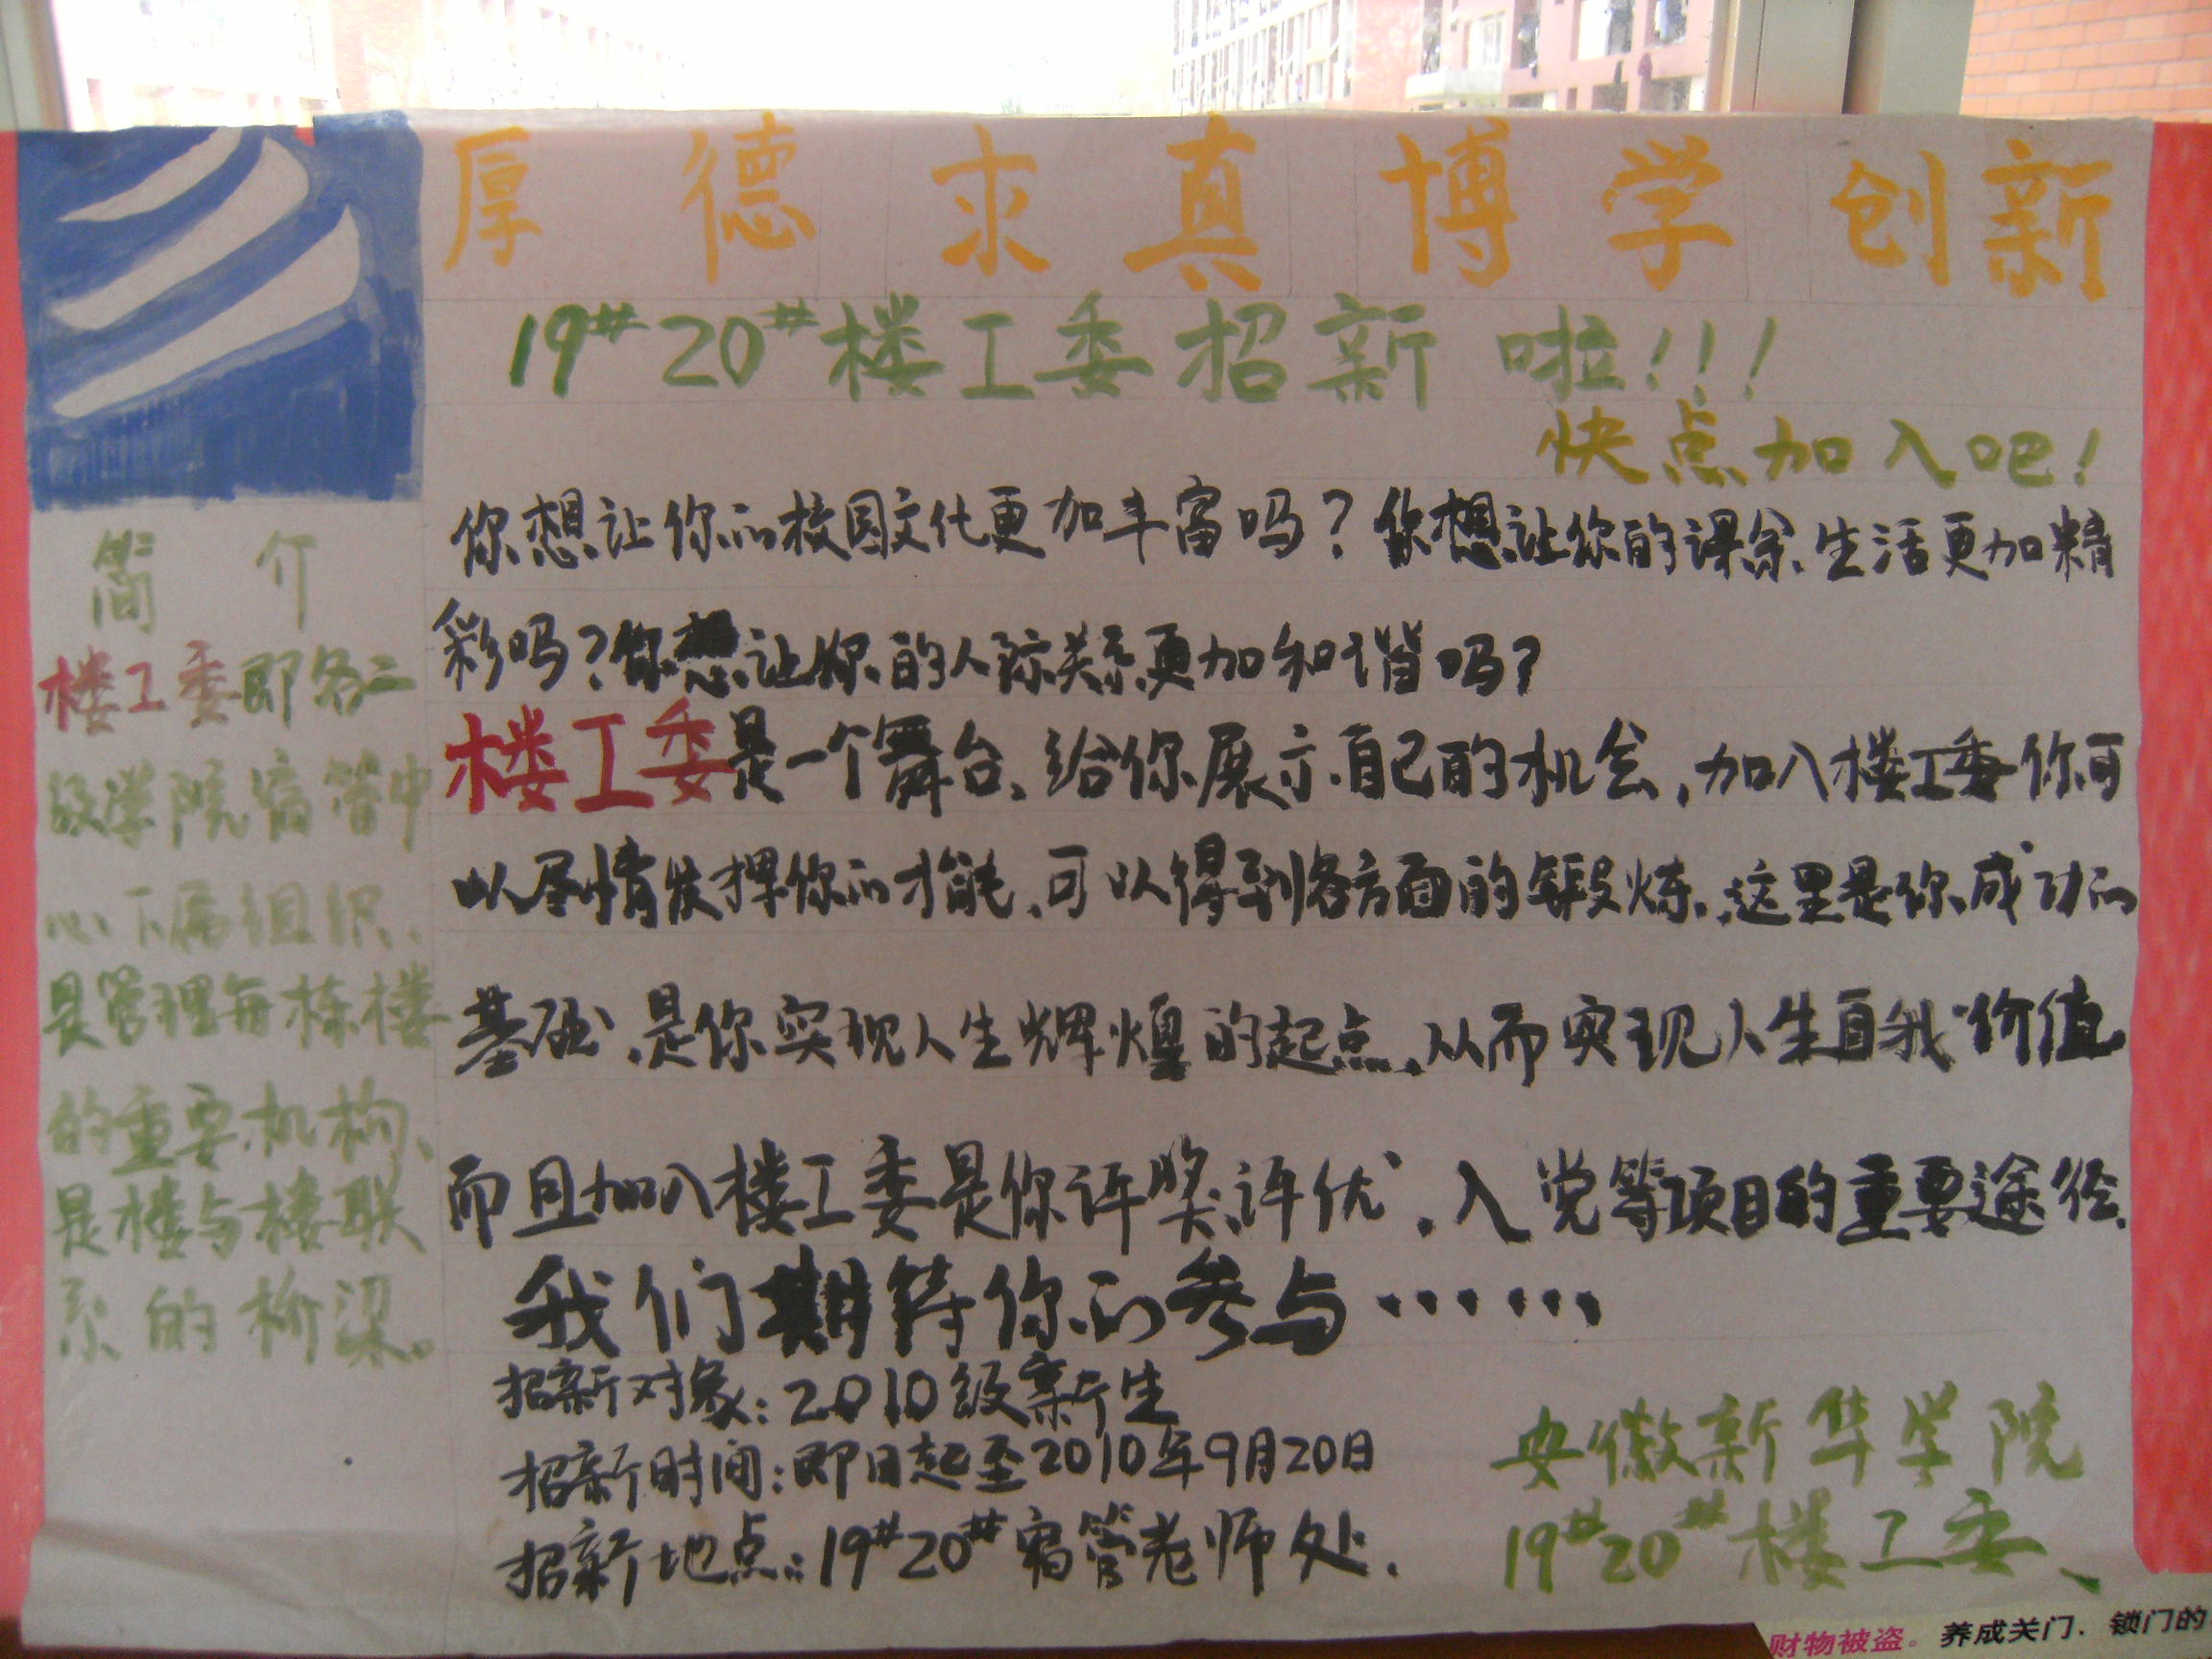 厚德求真博学创新
19# 20# 楼工委招新 啦!!!
快点加入吧!
简 介
楼工委即各二
级学院宿管中
心下属组织、
是管理每栋楼
的重要机构、
是楼与楼联
系的桥梁。
你想让你的校园文化更加丰富吗?你想让你的课余生活更加精
彩吗?你想让你的人际关系更加和谐吗?
楼工委是一个舞台、给你展示自己的机会,加入楼工委你可
以尽情发挥你的才能、可以得到各方面的锻炼、这里是你成功的
基础、是你实现人生辉煌的起点、从而实现人生自我价值
而且加入楼工委是你评奖、评优、入党等项目的重要途径、
我们期待你的参与……
招新对象:2010级新生
招新时间:即日起至2010年9月20日
招新地点:19# 20# 宿管老师处.
安徽新华学院
19# 20# 楼工委、
财物被盗。养成关门、锁门的